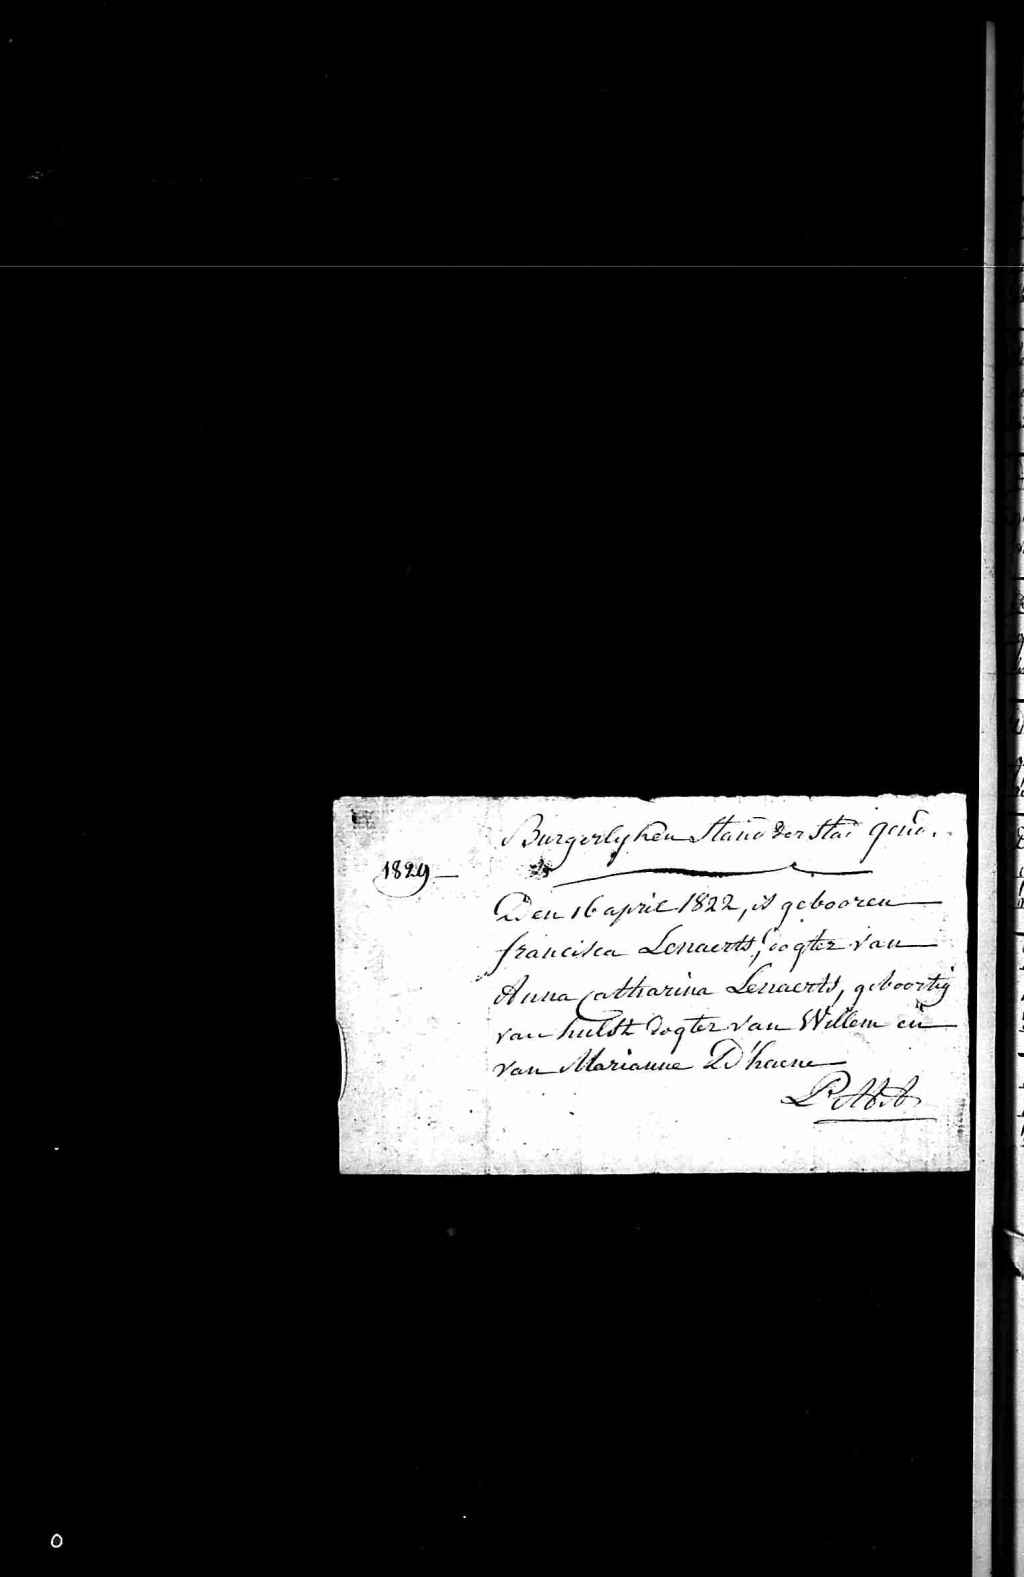 Burgerlyken Stand der Stad Gend.
1829
Den 16 april 1822, is gebooren
francisca Lenaerts, dogter van
Anna Catharina Lenaerts, geboortig
van hulst dogter van Willem en
van Marianne D'haene